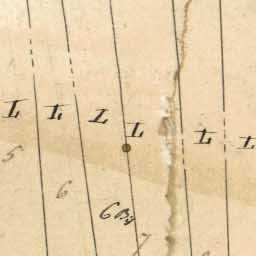 L L L L L L
5 6 6 By 7